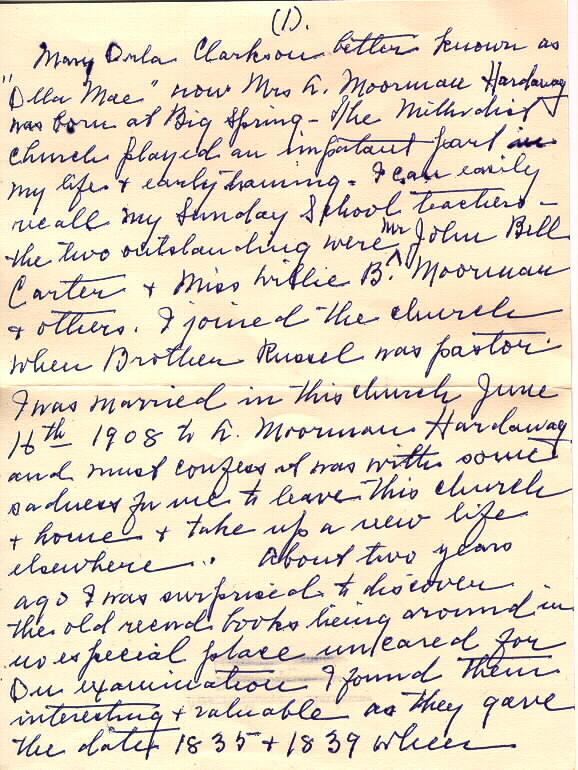 (1).
Mary Orla Clarkson better known as
"Olla Mae" now Mrs A. Moorman Hardaway
was born at Big Spring - The Methodist
church played an important part in
my life & early training - I can easily
recall my Sunday School teachers -
the two outstanding were Mr John Bell
Carter & Miss Willie B. Moorman
& others. I joined the church
when Brother Russel was pastor.
I was married in this church June
16th 1908 to A. Moorman Hardaway
and must confess it was with some
sadness for me to leave this church
& home & take up a new life
elsewhere. About two years
ago I was surprised to discover
the old record books being around in
no especial place uncared for
On examination I found them
interesting & valuable as they gave
the date 1835 & 1839 when